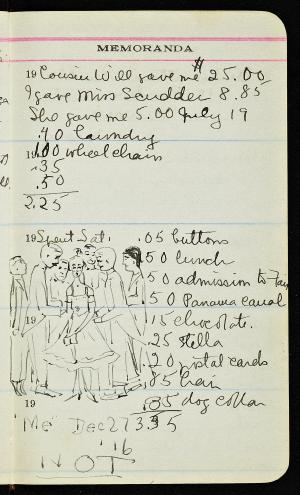 MEMORANDA
19 Cousin Will gave me $25.00
I gave Miss Scudder 8.85
She gave me 5.00 July 19
.40 laundry
19 1.00 wheel chair
.35
.50
2.25
19 Spent Sat. .05 buttons
.50 lunch
.50 admission to Fair
.50 Panama canal
19 .15 chocolate.
.25 Stella
.20 postal cards
.05 hair
19 .05 dog collar
"Me" Dec 27 3.35
'16
NOT